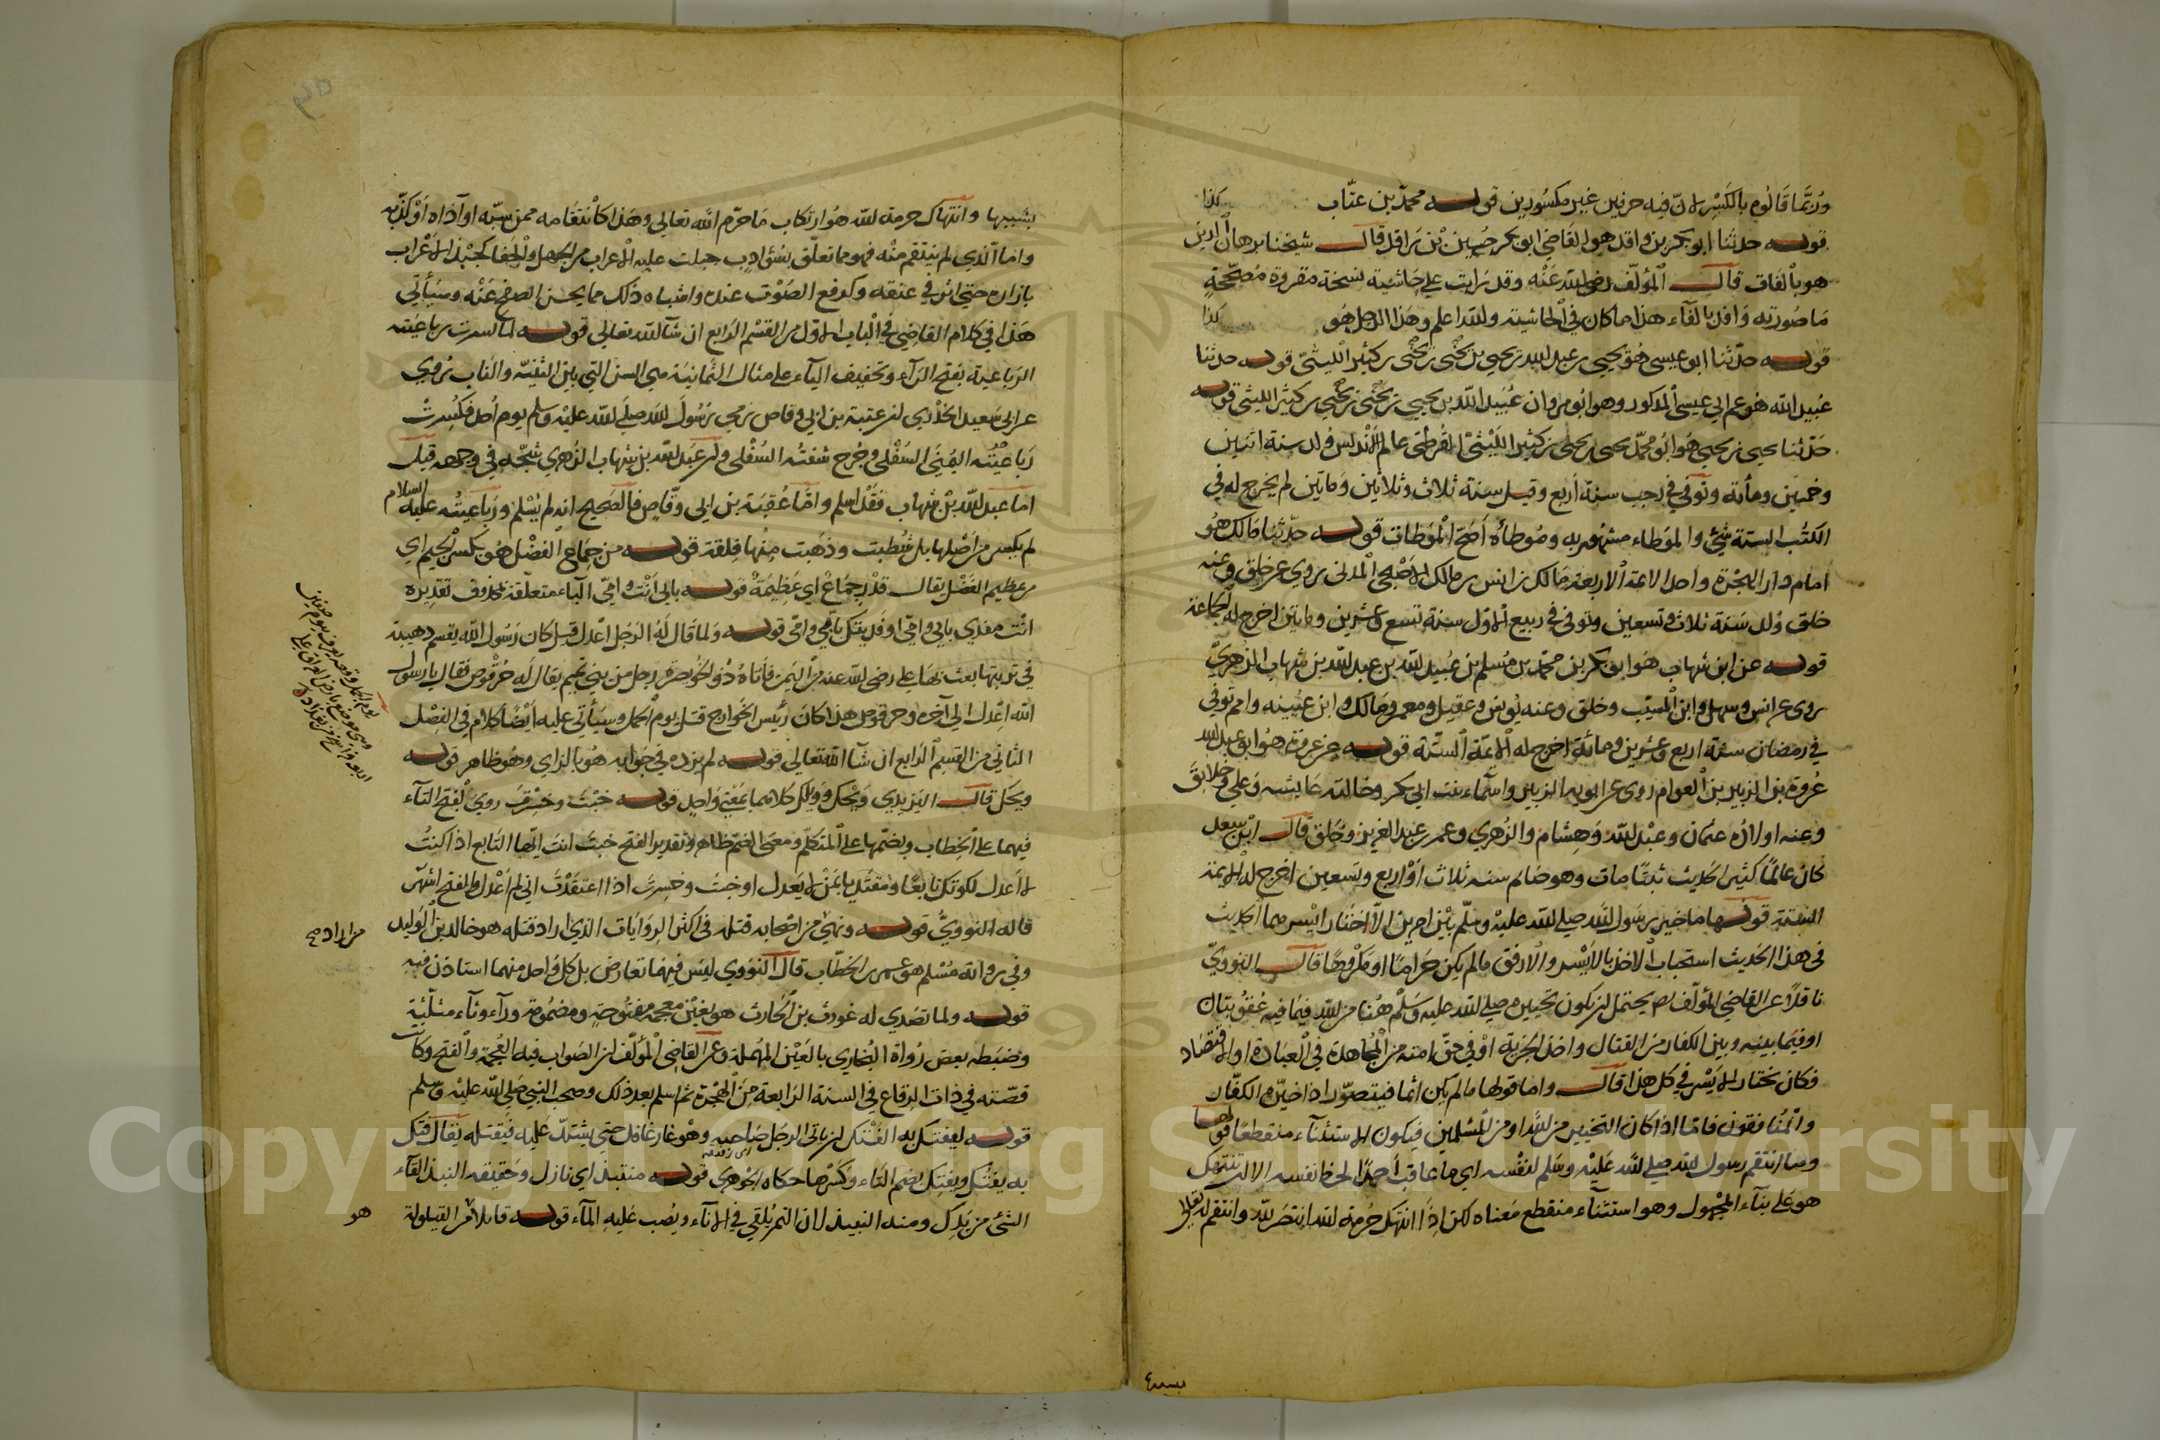 وربما قالوه بالكسر لان فيه حرفين غير مكسورين قوله محمد بن عتاب كذا
قوله حدثنا ابو بكر بن واقد هو القاضي ابو بكر حسين بن وافد قال شيخنا برهان الدين
هو بالقاف قال المؤلف رضي الله عنه وقد رايت على حاشية نسخة مقروة مصححة
ما صورته وافد بالفاء هذا ما كان في الحاشية والله اعلم وهذا الرجل هو كذا
قوله حدثنا ابو عيسى هو يحيى بن عبد الله بن يحيى بن يحيى بن يحيى بن كثير الليثي قوله حدثنا
عبيد الله هو عم ابي عيسى المذكور وهو ابو مروان عبيد الله بن يحيى بن يحيى بن يحيى بن كثير الليثي قوله
حدثنا يحيى بن يحيى هو ابو محمد يحيى بن يحيى بن كثير الليثي القرطبي عالم الاندلس ولد سنة اثنين
وخمسين ومائة وتوفي في رجب سنة اربع وقيل سنة ثلاث وثلاثين وماتين لم يخرج له في
الكتب الستة شئ والموطاء مشهور به وموطاه اصح الموطات قوله حدثنا مالك هو
امام دار الهجرة واحد الائمة الاربعة مالك بن انس بن مالك الاصبحي المدني يروي عن خلق وعنه
خلق ولد سنة ثلاث وتسعين وتوفي في ربيع الاول سنة تسع وعشرين وماتين اخرج له الجماعة
قوله عن ابن شهاب هو ابو بكر بن محمد بن مسلم بن عبيد الله بن عبد الله بن شهاب الزهري
روى عن انس وسهل وابن المسيب وخلق وعنه يونس وعقيل ومعمر ومالك وابن عيينه وامم توفي
في رمضان سنة اربع وعشرين ومائة اخرج له الائمة الستة قوله عن عروة هو ابو عبد الله
عروة بن الزبير بن العوام روى عن ابويه الزبير واسماء بنت ابي بكر وخالته عايشه وعلي وخلايق
وعنه اولاده عثمان وعبد الله وهشام والزهري وعمر بن عبد العزيز وخلق قال ابن سعد
كان عالما كثير الحديث ثبتا مات وهو صايم سنه ثلاث او اربع وتسعين اخرج له الائمة
الستة قولها ما خير رسول الله صلى الله عليه وسلم بين امرين الا اختار ايسرهما الحديث
في هذا الحديث استحباب الاخذ بالايسر والارفق مالم يكن حراما او مكروها قال النووي
ناقلا عن القاضي المؤلف بحتمل ان يكون تخييره صلى الله عليه وسلم هنا من الله فيما فيه عقوبتان
او فيما بينه وبين الكفار من القتال واخذ الجزية او في حق امته من المجاهدة في العبادة او الاقتصاد
فكان يختار الايسر في كل هذا قال واما قولها مالم يكن اثما فيتصور اذا خيره الكفار
والمنافقون فاما اذا كان التخيير من الله او من المسلمين فيكون الاستثناء منقطعا قولها
وما انتقم رسول الله صلى الله عليه وسلم لنفسه اي ما عاقب احدا لحظ نفسه الا ان تنتهك
هو على بناء المجهول وهو استثناء منقطع معناه لكن اذا انتهك حرمة لله انتصر لله وانتقم له
بسببها وانتهاك حرمة لله هو ارتكاب ما حرم الله تعالى وهذا كانتقامه ممن سبه او آذاه او كذبه
واما الذي لم ينتقم منه فهو مما تعلق بسوء ادب جبلت عليه الاعراب من الجهل والجفا كجبذ الاعراب
بازاره حتى اثر في عنقه وكرفع الصوت عنده واشباه ذلك مما يحسن الصفح عنه وسيأتي
هذا في كلام القاضي في الباب الاول من القسم الرابع ان شا الله تعالى قوله لما كسرت رباعيته
الرباعية بفتح الراء وتخفيف الياء على مثال الثمانية هي السن التي بين الثنية والناب يروي
عن ابي سعيد الخدري ان عتبة بن ابي وقاص رمى رسول الله صلى الله عليه وسلم يوم احد فكسرت
رباعيته اليمنى السفلى وجرح شفته السفلى وان عبد الله بن شهاب الزهري شجه في وجهه قيل
اما عبد الله بن شهاب فقد اسلم واما عقبة بن ابي وقاص فالصحيح انه لم يسلم ورباعيته عليه السلام
لم يكسر من اصلها بل شطبت وذهبت منها فلقة قوله من جماع الفضل هو بكسر الجيم اي
من عظيم الفضل يقال قدر جماع اي عظيمة قوله بابي انت وامي الباء متعلقة بمحذوف تقديره
انت مفدي بابي وامي او فديتك بابي وامي قوله ولما قال له الرجل اعدل قيل كان رسول الله يقسم ذهيبة
في تربتها بعث بها علي رضي الله عنه من اليمن فاتاه ذو الخويصرة رجل من بني تميم يقال له حرقوص فقال يا رسول
الله اعدل الى آخره وحرقوص هذا كان رئيس الخوارج قتل يوم الجمل وسيأتي عليه ايضا كلام في الفصل
الثاني من القسم الرابع ان شا الله تعالى قوله لم يزده في جوابه هو بالزاي وهو ظاهر قوله
ويحك قال اليزيدي ويحك وويلك كلاهما بمعنى واحد قوله خبت وخسرت روي بفتح التاء
فيهما على الخطاب وبضمها على المتكلم ومعنى الضم ظاهر وتقدير الفتح خبت انت ايها التابع اذا كنت
لا اعدل لكونك تابعا ومقتديا بمن لا يعدل او خبت وخسرت اذا اعتقدت اني لم اعدل والفتح اشهر
قاله النووي قوله ونهى من اصحابه قتله في اكثر الروايات الذي اراد قتله هو خالد بن الوليد
من اراد صح
وفي رواية مسلم هو عمر بن الخطاب قال النووي ليس فيهما تعارض بل كل واحد منهما استاذن فيه
قوله ولما تصدي له غورث بن الحارث هو بغين معجمة مفتوحة ومضمومة وراء وثاء مثلثة
وضبطه بعض رواة البخاري بالعين المهملة وعن القاضي المؤلف ان الصواب فيه المعجمة والفتح وكانت
قصته في ذات الرقاع في السنة الرابعة من الهجرة ثم اسلم بعد ذلك وصحب النبي صلى الله عليه وسلم
قوله ليفتك به الفتك ان ياتي الرجل صاحبه وهو غار غافل حتى يشتد عليه فيقتله يقال فتك
به يفتك ويفتك بضم التاء وكسرها حكاه الجوهري قوله منتبذ اي نازل وحقيقه النبذ القاء
الشئ من يدك ومنه النبيذ لان التمر يلقي في الاناء ويصب عليه الماء قوله قايلا من القيلولة
هو